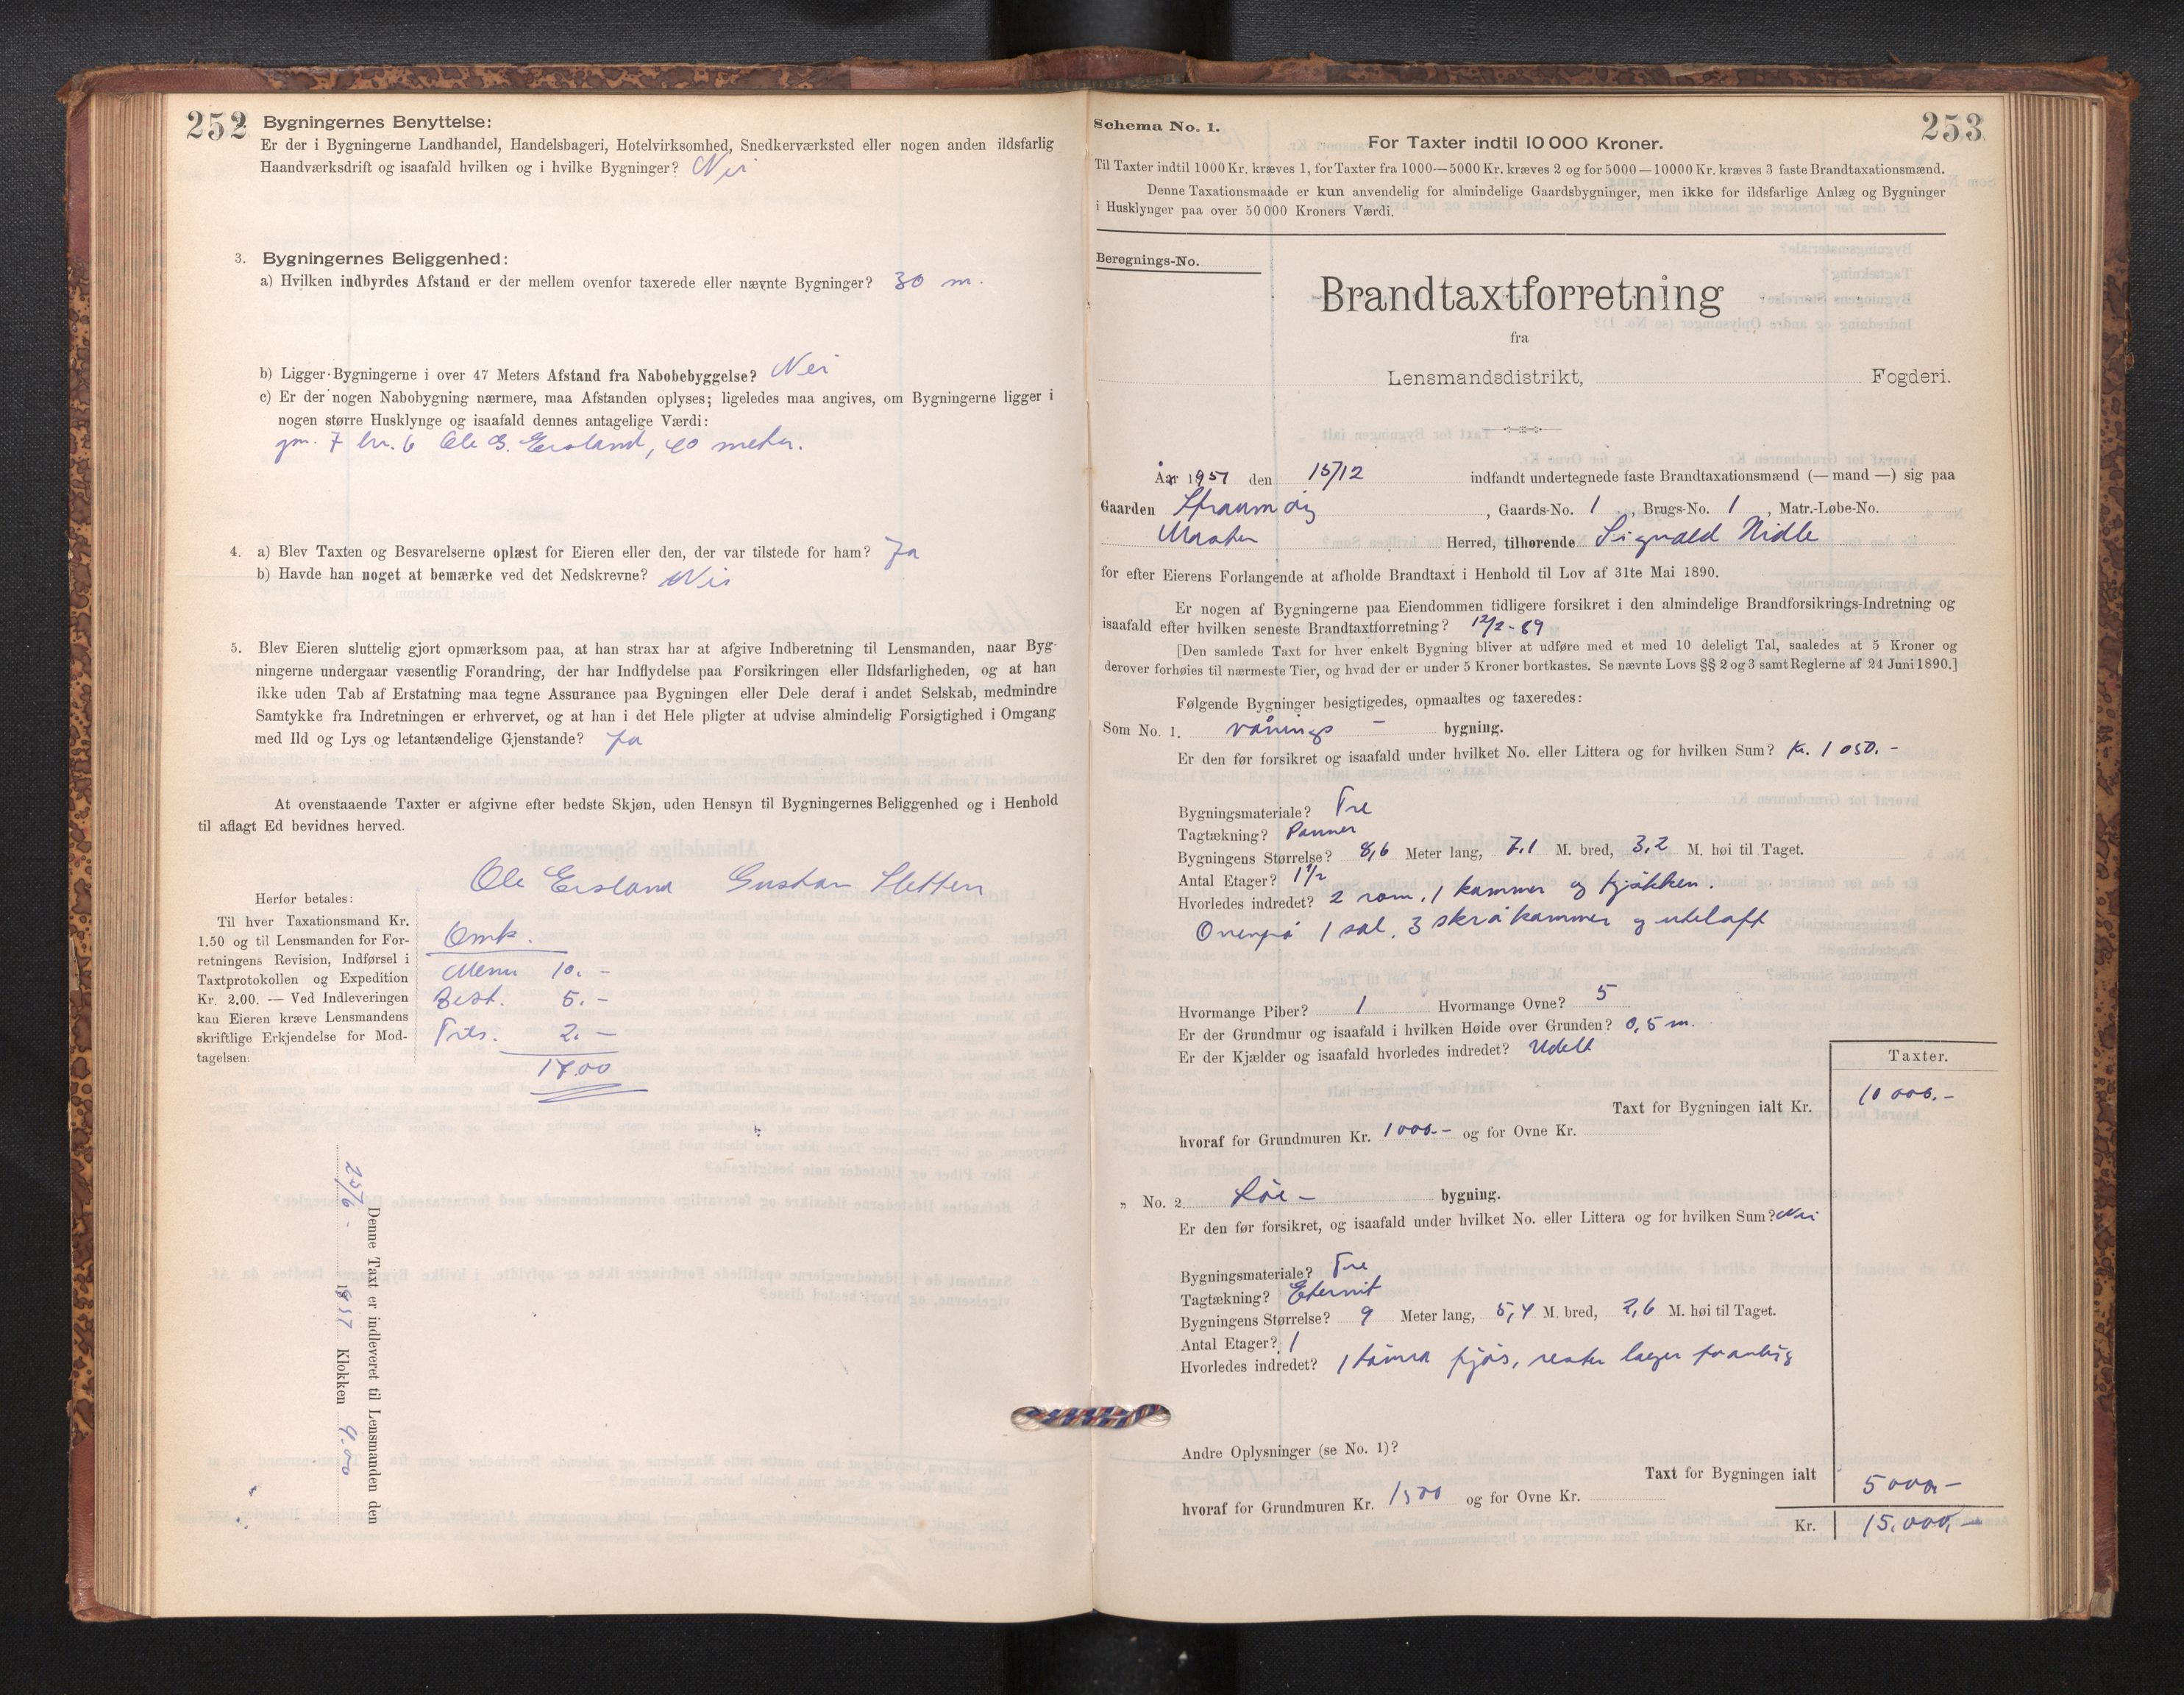 252
Bygningernes Benyttelse:
Er der i Bygningerne Landhandel, Handelsbageri, Hotelvirksomhed, Snedkerværksted eller nogen anden ildsfarlig
Haandværksdrift og isaafald hvilken og i hvilke Bygninger? Nei
3. Bygningernes Beliggenhed:
a) Hvilken indbyrdes Afstand er der mellem ovenfor taxerede eller nævnte Bygninger? 30 m.
b) Ligger Bygningerne i over 47 Meters Afstand fra Nabobebyggelse? Nei
c) Er der nogen Nabobygning nærmere, maa Afstanden oplyses; ligeledes maa angives, om Bygningerne ligger i
nogen større Husklynge og isaafald dennes antagelige Værdi:
gnr. 7 br. 6 Ole G. Ersland, 40 meter.
4. a) Blev Taxten og Besvarelserne oplæst for Eieren eller den, der var tilstede for ham? Ja
b) Havde han noget at bemærke ved det Nedskrevne? Nei
5. Blev Eieren sluttelig gjort opmærksom paa, at han strax har at afgive Indberetning til Lensmanden, naar Byg-
ningerne undergaar væsentlig Forandring, der har Indflydelse paa Forsikringen eller Ildsfarligheden, og at han
ikke uden Tab af Erstatning maa tegne Assurance paa Bygningen eller Dele deraf i andet Selskab, medmindre
Samtykke fra Indretningen er erhvervet, og at han i det Hele pligter at udvise almindelig Forsigtighed i Omgang
med Ild og Lys og letantændelige Gjenstande? Ja
At ovenstaaende Taxter er afgivne efter bedste Skjøn, uden Hensyn til Bygningernes Beliggenhed og i Henhold
til aflagt Ed bevidnes herved.
Ole Ersland Gustav Sletten
Herfor betales:
Til hver Taxationsmand Kr.
1.50 og til Lensmanden for For-
retningens Revision, Indførsel i
Taxtprotokollen og Expedition
Kr. 2.00. — Ved Indleveringen
kan Eieren kræve Lensmandens
skriftlige Erkjendelse for Mod-
tagelsen.
Omk.
Menn 10.-
Best. 5.-
2.-
17.00
Denne Taxt er indleveret til Lensmanden den
25/6 - 1957 Klokken 9.00
253
Schema No. 1.
For Taxter indtil 10 000 Kroner.
Til Taxter indtil 1000 Kr. kræves 1, for Taxter fra 1000—5000 Kr. kræves 2 og for 5000—10000 Kr. kræves 3 faste Brandtaxationsmænd.
Denne Taxationsmaade er kun anvendelig for almindelige Gaardsbygninger, men ikke for ildsfarlige Anlæg og Bygninger
i Husklynger paa over 50 000 Kroners Værdi.
Beregnings-No.
Brandtaxtforretning
fra
Lensmandsdistrikt, Fogderi.
Aar 1957 den 15/12 indfandt undertegnede faste Brandtaxationsmænd (— mand —) sig paa
Gaarden Straumøy, Gaards-No. 1, Brugs-No. 1, Matr.-Løbe-No.
Herred, tilhørende Sigvald Nidle
for efter Eierens Forlangende at afholde Brandtaxt i Henhold til Lov af 31te Mai 1890.
Er nogen af Bygningerne paa Eiendommen tidligere forsikret i den almindelige Brandforsikrings-Indretning og
isaafald efter hvilken seneste Brandtaxtforretning? 12/2-89
[Den samlede Taxt for hver enkelt Bygning bliver at udføre med et med 10 deleligt Tal, saaledes at 5 Kroner og
derover forhøies til nærmeste Tier, og hvad der er under 5 Kroner bortkastes. Se nævnte Lovs §§ 2 og 3 samt Reglerne af 24 Juni 1890.]
Følgende Bygninger besigtigedes, opmaaltes og taxeredes:
Som No. 1. vånings - bygning.
Er den før forsikret og isaafald under hvilket No. eller Littera og for hvilken Sum? Kr. 1 050.-
Bygningsmateriale? Tre
Tagtækning? Panner
Bygningens Størrelse? 8,6 Meter lang, 7,1 M. bred, 3,2 M. høi til Taget.
Antal Etager? 1 1/2
Hvorledes indredet? 2 rom, 1 kammer og kjøkken.
Ovenpå 1 sal, 3 skråkammer og uteloft
Hvormange Piber? 1 Hvormange Ovne? 5
Er der Grundmur og isaafald i hvilken Høide over Grunden? 0,5 m.
Er der Kjælder og isaafald hvorledes indredet? Udelt
Taxter.
Taxt for Bygningen ialt Kr. 10 000.-
hvoraf for Grundmuren Kr. 1000.- og for Ovne Kr.
„ No. 2 Løe - bygning.
Er den før forsikret, og isaafald under hvilket No. eller Littera og for hvilken Sum? Nei
Bygningsmateriale? Tre
Tagtækning? Eternit
Bygningens Størrelse? 9 Meter lang, 5,4 M. bred, 2,6 M. høi til Taget.
Antal Etager? 1
Hvorledes indredet? 1 tømra fjøs, resten
Andre Oplysninger (se No. 1)?
Taxt for Bygningen ialt 5000.-
hvoraf for Grundmuren Kr. 1500 og for Ovne Kr.
Kr. 15.000,-